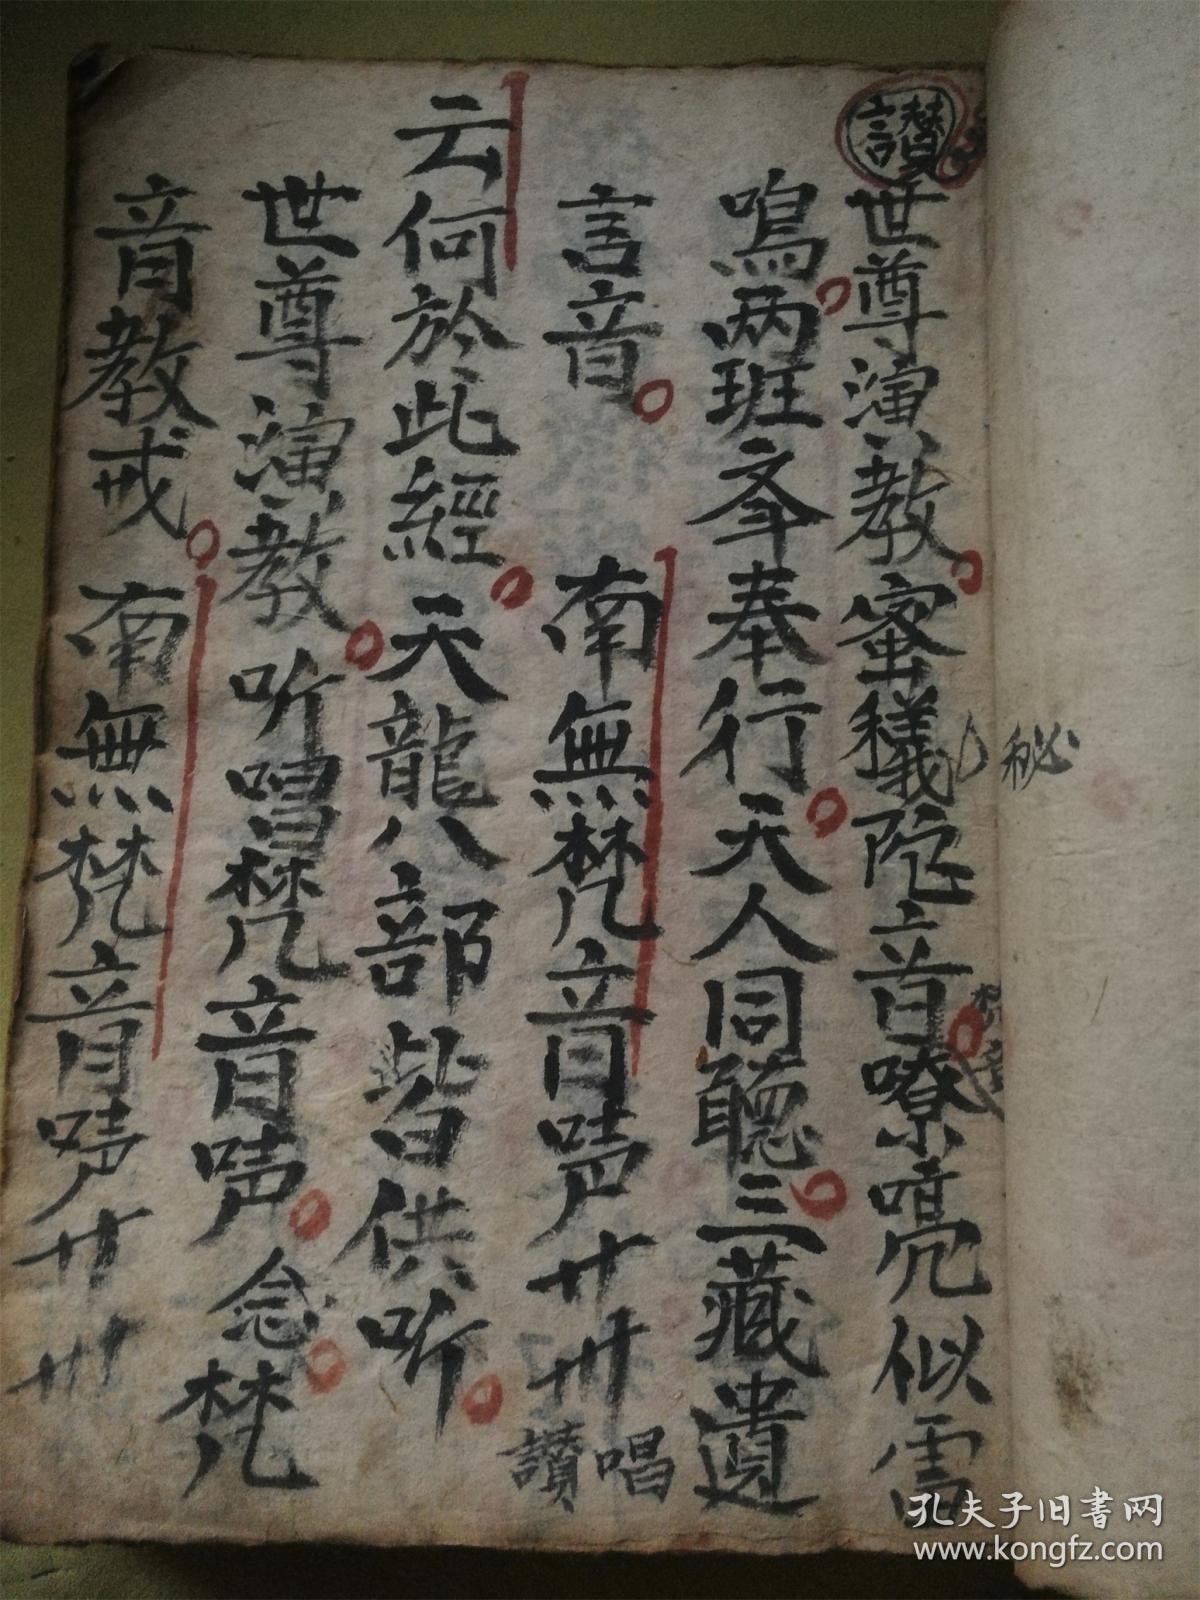 讃
世尊演教蜜𥢢陀音嘹喨似雷
秘
梵音
鳴两班夆奉行天人同聽三藏遺
言音南無梵音㖓廿卅
唱讃
云何於此經天龍八部皆供听
世尊演教听唱梵音㖓念梵
音教戒南無梵音㖓廿卅
孔夫子旧书网
www.kongfz.com